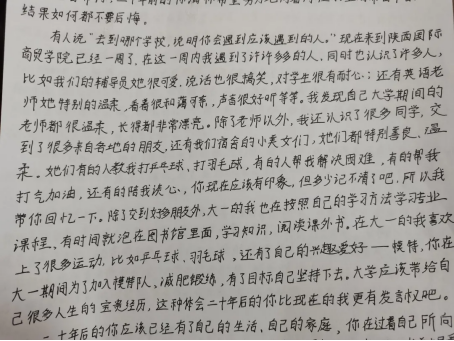 结果如何都不要后悔。
有人说"去到哪个学校,说明你会遇到应该遇到的人。"现在来到陕西国际
商贸学院已经一周了,在这一周内我遇到了许许多多的人,同时也认识了许多人,
比如我们的辅导员她很可爱,说话也很搞笑,对学生很有耐心;还有英语老
师她特别的温柔,看着很和蔼可亲,声音很好听等等。我发现自己大学期间的
老师都很温柔,长得都非常漂亮。除了老师以外,我还认识了很多同学,交
到了很多来自各地的朋友,还有我们宿舍的小美女们,她们都特别善良、温
柔。她们有的人教我打乒乓球、打羽毛球,有的人帮我解决困难,有的帮我
打气加油,还有的陪我谈心,你现在应该有印象,但多少记不清了吧,所以我
带你回忆一下。除了交到好多朋友外,大一的我也在按照自己的学习方法学习专业
课程,有时间就泡在图书馆里面,学习知识,阅读课外书。在大一的我喜欢
上了很多运动,比如乒乓球、羽毛球,还有了自己的兴趣爱好——模特,你在
大一期间为了加入模特队,减肥锻练,有了目标自己坚持下去。大学应该带给自
己很多人生的宝贵经历,这种体会二十年后的你比现在的我更有发言权吧。
二十年后的你应该已经有了自己的生活,自己的家庭,你在过着自己所向